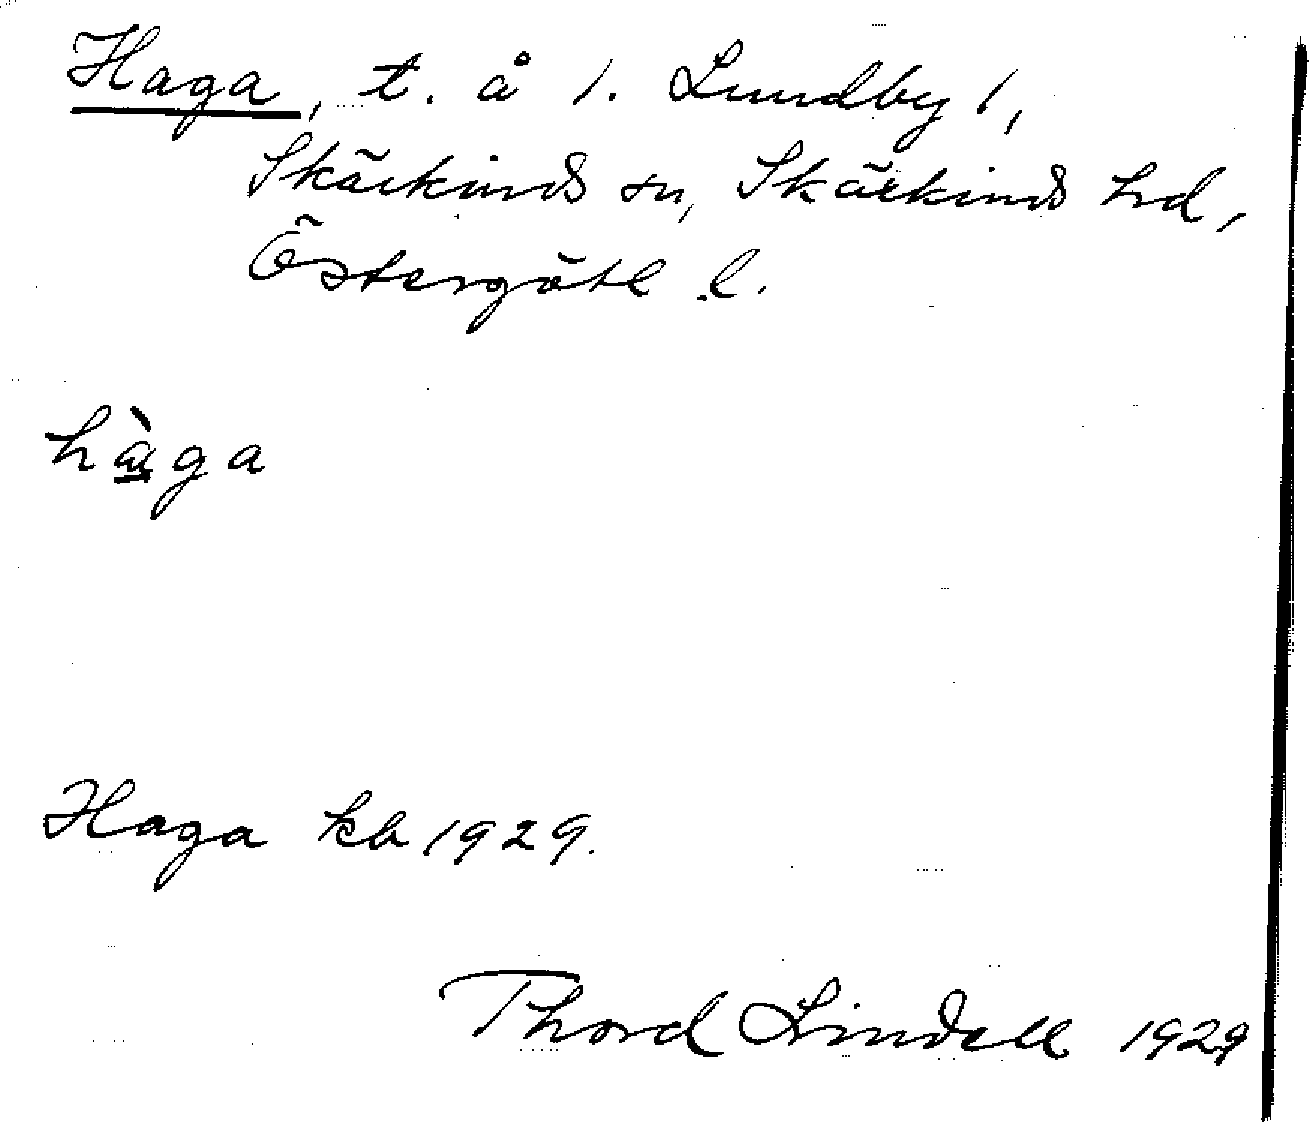 Haga, t. å 1. Lundby 1,
Skärkinds sn, Skärkinds hd,
Östergötl l.
hàga
Haga kb 1929.
Thord Lindell 1929